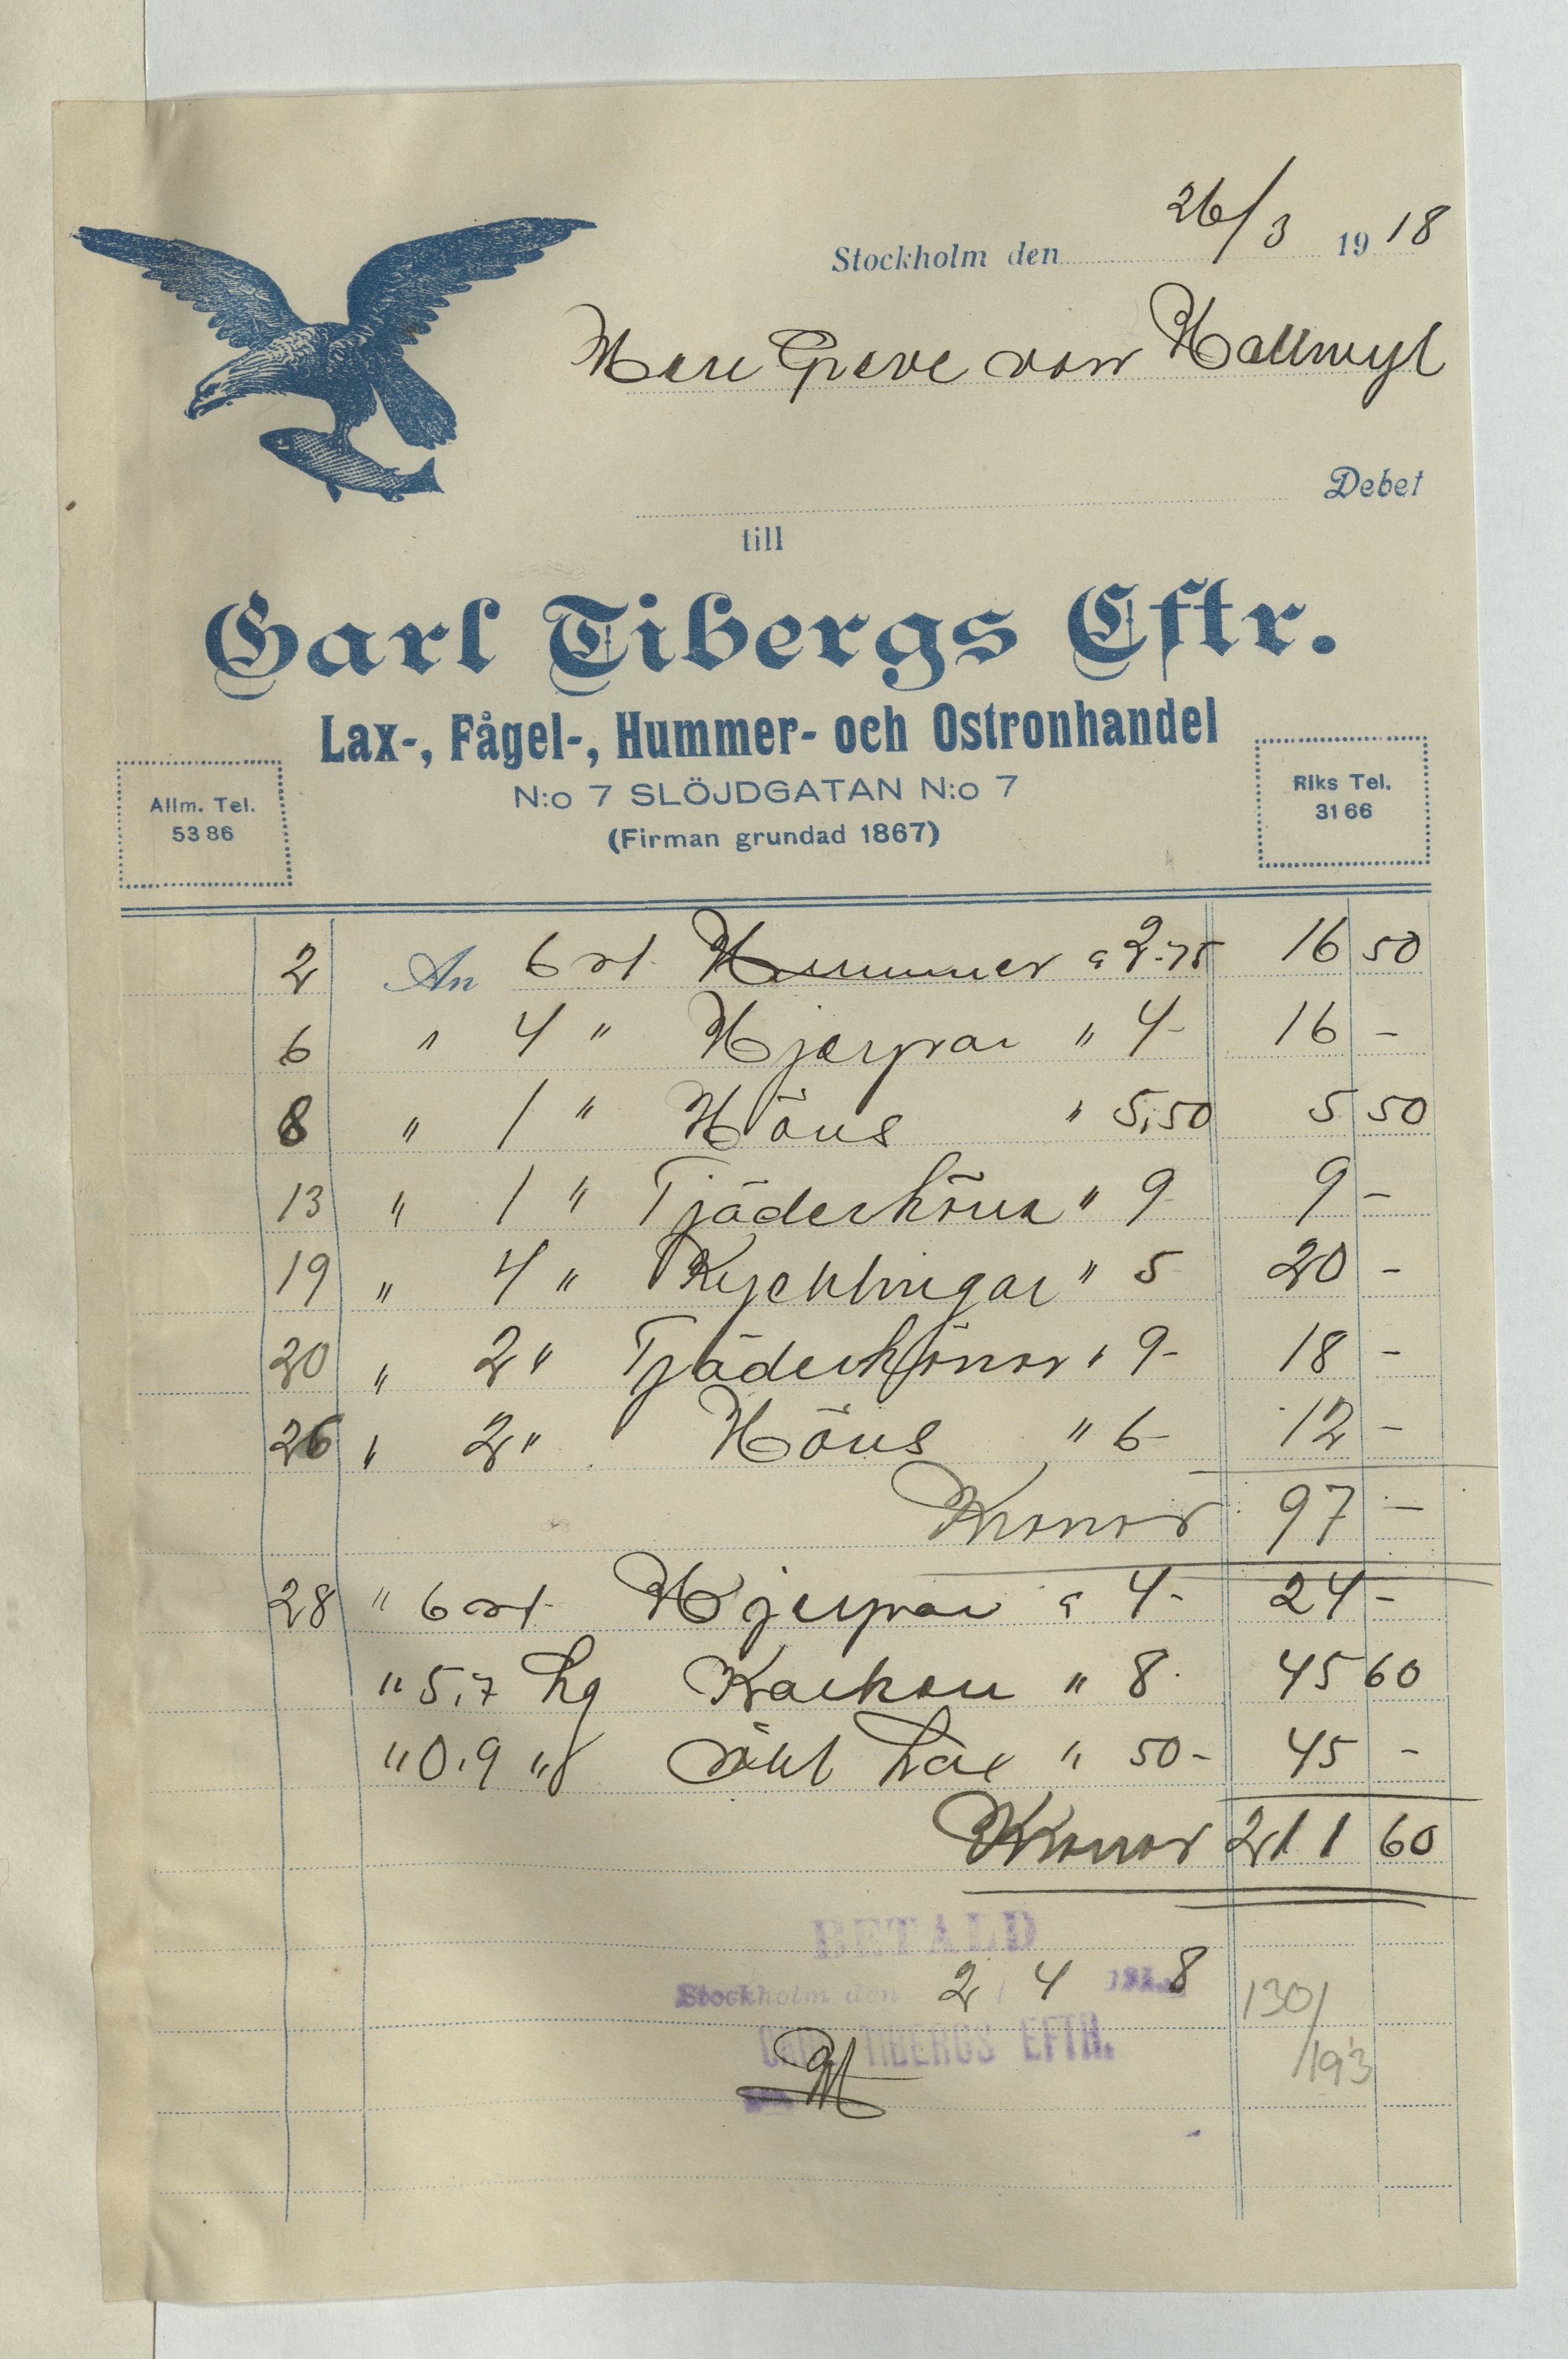 Stockholm den 26/3 1918
Herr Greve von Hallwyl
Debet
till
Carl Tibergs Eftr.
Lax-, Fågel-, Hummer- och Ostronhandel
N:o 7 SLÖJDGATAN N:o 7
(Firman grundad 1867)
Allm. Tel.
53 86
Riks Tel.
31 66
2 An 6 st Hummer a 2.75 16 50
6 " 4 " Hjerpar " 4- 16 -
8 " 1 " Höns " 5,50 5 50
13 " 1 " Tjäderhöna " 9- 9 -
19 " 4 " Kycklingar " 5 20 -
20 " 2 " Tjäderhönor " 9- 18 -
26 " 2 " Höns " 6- 12 -
Kronor 97 -
28 " 6 st. Hjerpar a 4- 24 -
" 5,7 kg Kalkon " 8- 45 60
" 0,9 " rökt Lax " 50- 45 -
Kronor 211 60
BETALD
Stockholm den 2 / 4 191 8
CARL TIBERGS EFTR.
130/
/193